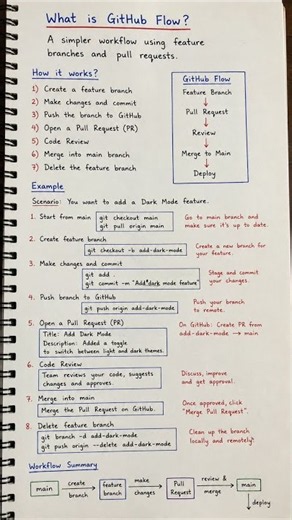 What is GitHub Flow?
A simpler workflow using feature
branches and pull requests.
How it works?
1) Create a feature branch
2) Make changes and commit
3) Push the branch to GitHub
4) Open a Pull Request (PR)
5) Code Review
6) Merge into main branch
7) Delete the feature branch
GitHub Flow
Feature Branch
↓
Pull Request
↓
Review
↓
Merge to Main
↓
Deploy
Example
Scenario: You want to add a Dark Mode feature.
1. Start from main
git checkout main
git pull origin main
Go to main branch and
make sure it's up to date.
2. Create feature branch
git checkout -b add-dark-mode
Create a new branch for
your feature.
3. Make changes and commit
git add .
git commit -m "Add dark mode feature"
Stage and commit
your changes.
4. Push branch to GitHub
git push origin add-dark-mode
Push your branch
to remote.
5. Open a Pull Request (PR)
Title: Add Dark Mode
Description: Added a toggle
to switch between light and dark themes.
On GitHub: Create PR from
add-dark-mode → main
6. Code Review
Team reviews your code, suggests
changes and approves.
Discuss, improve
and get approval.
7. Merge into main
Merge the Pull Request on GitHub.
Once approved, click
"Merge Pull Request".
8. Delete feature branch
git branch -d add-dark-mode
git push origin --delete add-dark-mode
Clean up the branch
locally and remotely.
Workflow Summary
main → create branch → feature branch → make changes → Pull Request → review & merge → main
↓ deploy